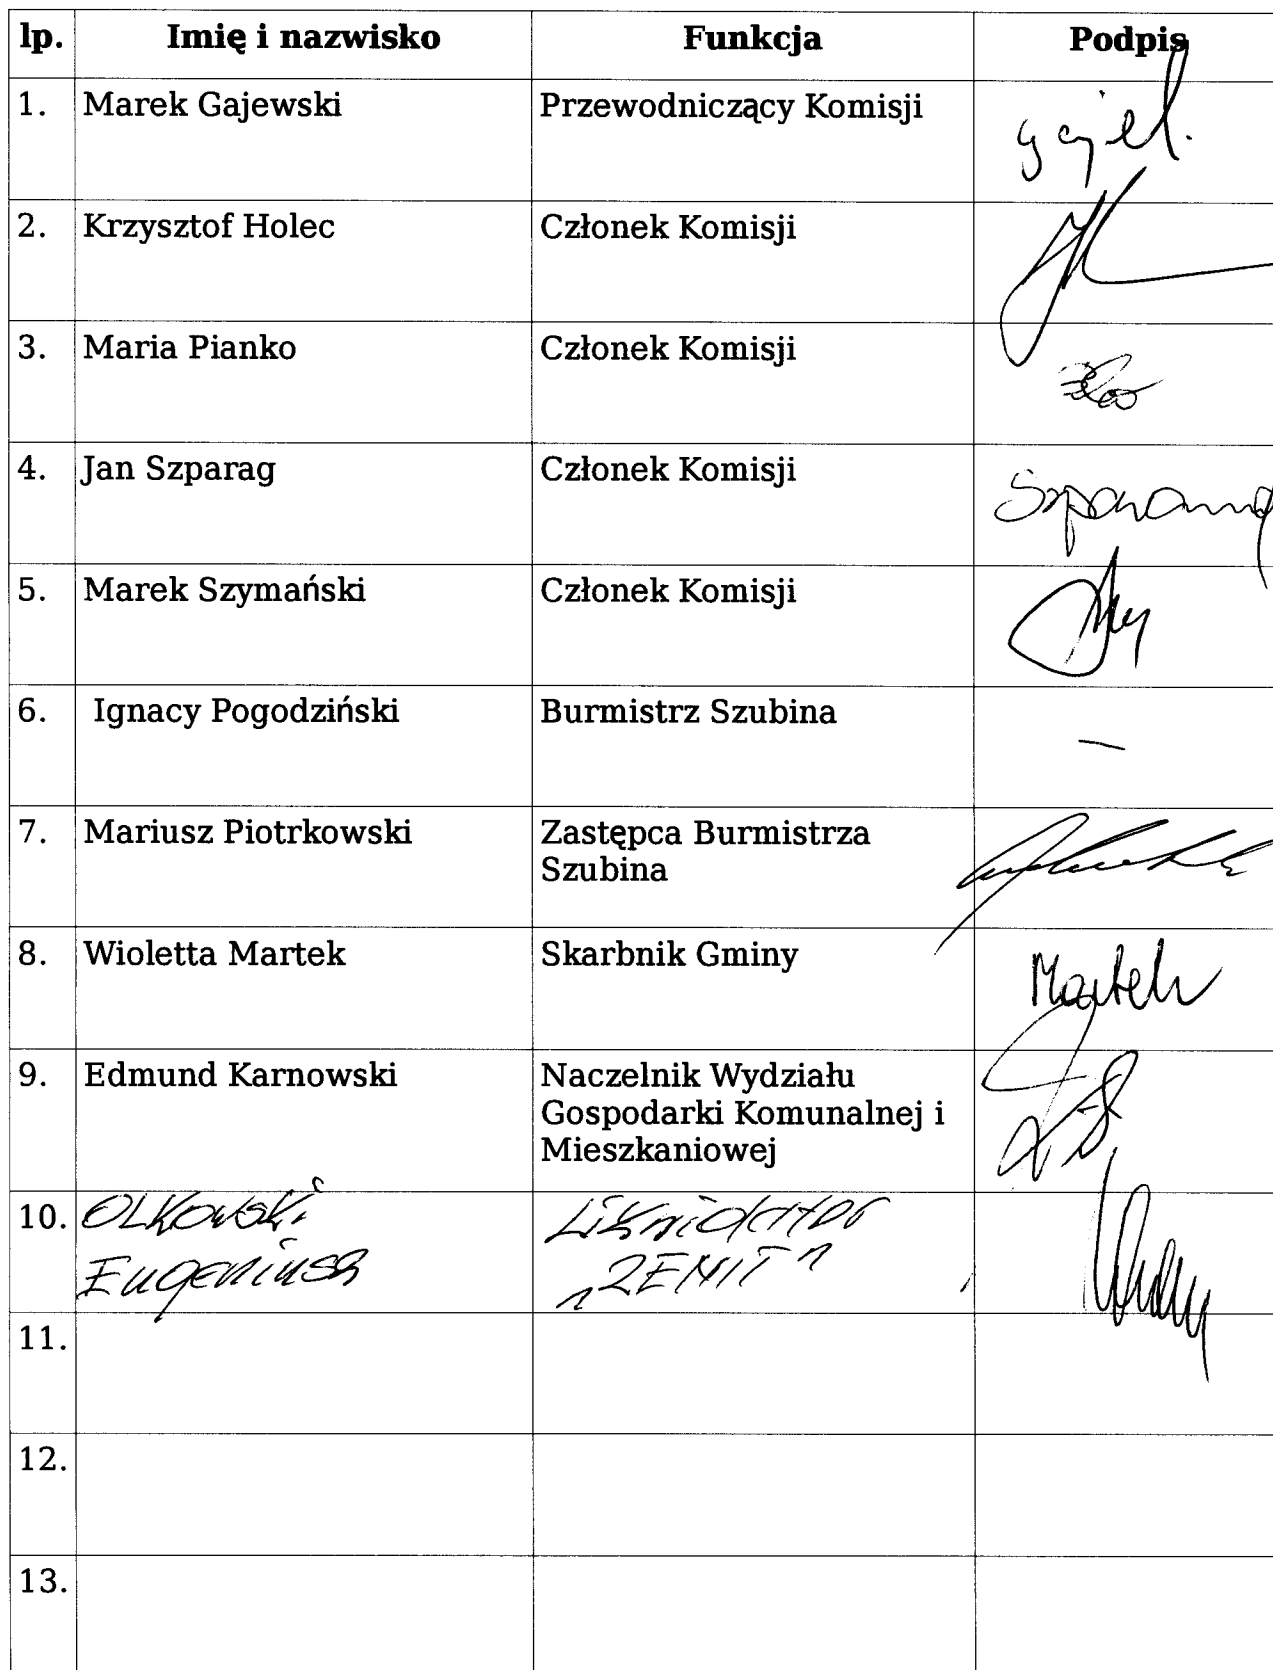 lp. Imię i nazwisko Funkcja Podpis
1. Marek Gajewski Przewodniczący Komisji
2. Krzysztof Holec Członek Komisji
3. Maria Pianko Członek Komisji
4. Jan Szparag Członek Komisji
5. Marek Szymański Członek Komisji
6. Ignacy Pogodziński Burmistrz Szubina –
7. Mariusz Piotrkowski Zastępca Burmistrza
Szubina
8. Wioletta Martek Skarbnik Gminy Martek
9. Edmund Karnowski Naczelnik Wydziału
Gospodarki Komunalnej i
Mieszkaniowej
10. OLKOWSKi
Eugeniusz "ZENIT"
11.
12.
13.